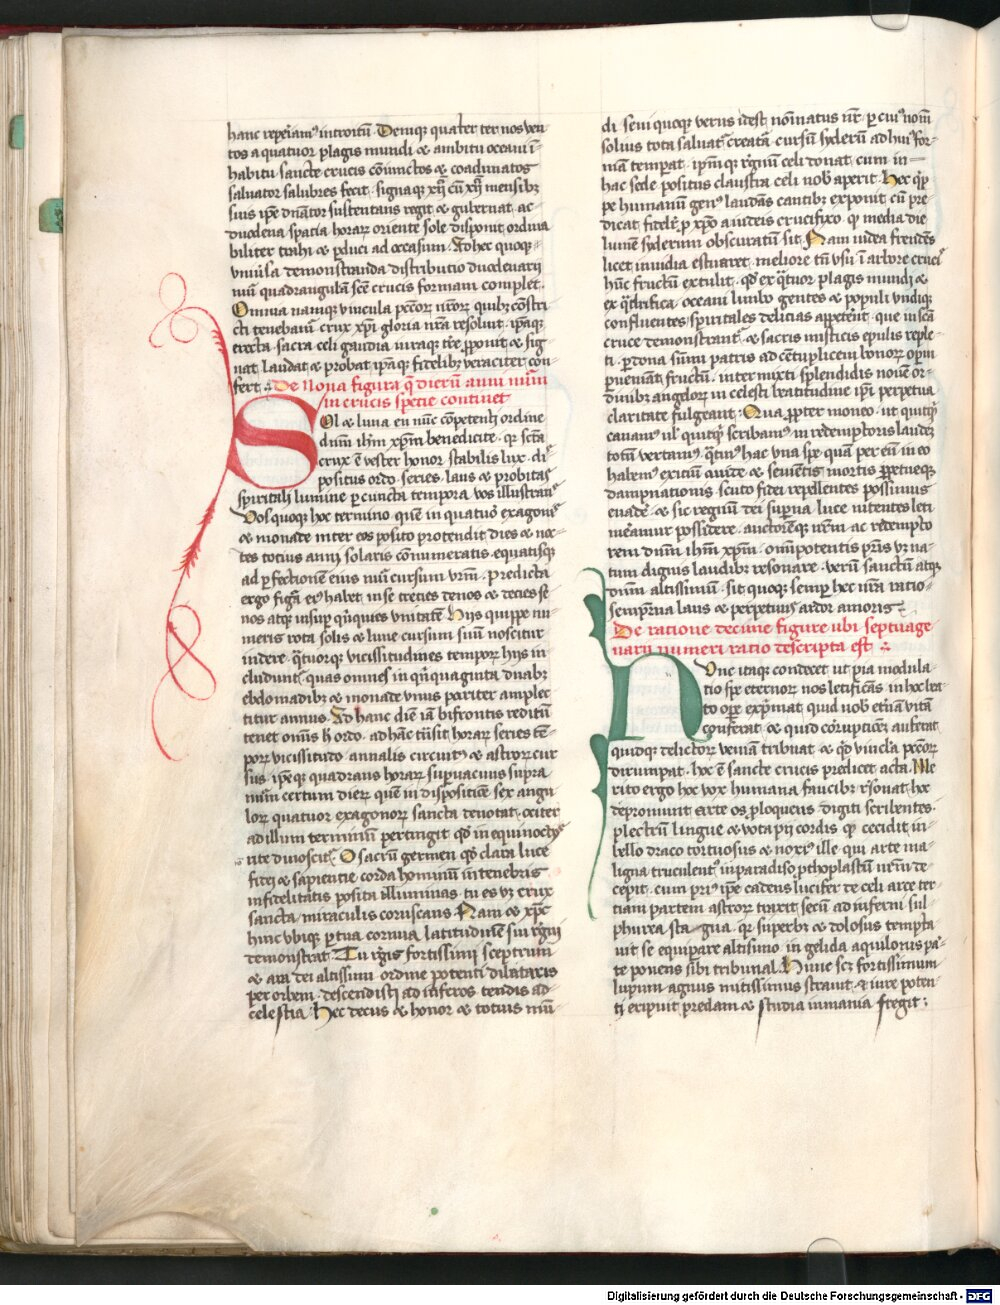 hanc reperiam⁹ introitū. Denique quater ter nos ven
tos a quatuor plagis mundi & ambitu oceani ī
habitu sancte crucis cōiunctos & coadunatos
saluator salubres fecit. signaque xij cū xij mensibȝ
suis ipe dn̄ator sustentans regit & gubernat. ac
duodena spatia horarꝝ oriente sole disponit ordina
biliter trahi & ꝑduci ad occasum. Adhec quoque
vniūsa demonstranda distributio duodenarij
nūi quadrangulā sc̄e crucis formam complet.
Omnia namque vincula pctōrꝝ nr̄orꝝ quibȝ cōstri
cti tenebamur crux xp̄i gloria nr̄a resoluit. ip̄aque
erecta sacra celi gaudia
nat laudat & probat. ip̄aque fidelibȝ veraciter con
fert. De Nona figura q̄ dierū anni nūm̄
in crucis specie continet
Sol & luna en nūc cōpetenti ordine
dn̄m ihm̄ xp̄m benedicite. qꝛ sctā
crux ē vester honor stabilis lux. di
positus ordo. series. laus & probitas
spiritali lumine ꝑ cuncta tempora vos illustrans
Vos quoque hoc termino quē in quatuor exagonis
& monade inter eos posito protendit dies & noc
tes totius anni solaris cōnumeratis. equatisque
ad ꝑfectionē eius nūi cursum vr̄m. predicta
ergo figa eī habet in se trecenos & decies se
nos atque insuꝑ q̄nquies vnitatē. Hijs quippe nu
meris rota solis & lune cursum suū noscitur
indere. q̄tuorque vicissitudines temporꝝ hijs in
cludunt. quas omnes in qn̄quaginta duabȝ
ebdomadibȝ & monade vnius pariter amplec
titur annus. Ad hanc diē iā bifrontis reditū
tenet omnis h ordo. ad hāc trāsit horarꝝ series tē
porꝝ vicissitudo. annalis circuitus & astrorꝝ cur
sus. ipeque quadrans horarꝝ suꝑuacuus supra
nūm̄ certum dierꝝ quē in dispositiōe sex angu
lorꝝ quatuor exagonorꝝ sancta denotat. ociter
ad illum terminū pertingit qd̄ in equinoctijs
rite dinoscit. O sacrū germen qd̄ clara luce
fidei & sapientie corda hominū in tenebris
infidelitatis posita illuminas. tu es vȝ crux
sancta miraculis coruscans. Nam & xp̄c
hinc vbique ꝑ tua cornua latitudinē sui rḡni
demonstrat. Tu rgis fortissimi sceptrum
& ara dei altissimi ordine potenti dilataris
per orbem. descendisti ad inferos tendis ad
celestia. Hec decus & honor & totius mū
di. seui quoque verus idest nom̄inatus nr̄. ꝑ cui⁹ nom̄
solius tota saluat creata. cursū syderū ad hui⁹ for
mā temperat. ipm̄que rḡnum celi donat. cum in
hac sede positus claustra celi nob̄ aperit. Hec q̄p
pe humanū gen⁹ laudās cantibȝ exponit. cū pre
dicat fidelr̄ ꝓ xp̄o a iudeis crucifixo. qꝫ media die
lumē syderum obscuratū sit. Nam iudea frendēs
licet inuidia estuaret. meliorē tn̄ vsū ī arbore crucis
hūc fructū extulit. qd̄ ex q̄tuor plagis mundi &
ex q̄drifica oceani limbo gentes & populi vndique
confluentes spiritales delicias appetent. que in scā
cruce demonstrant & sacris misticis epulis reple
ti. ꝑ dona sūmi patris ad cētuplicem bonorꝝ oꝑm
ꝑueniāt fructū. inter mixti splendidis nouē or
dinibȝ angelorꝝ in celesti beatitudine ipi perpetua
claritate fulgeant. Qua ꝓpter moneo. ut quitquid
canam⁹ ul̄ quitquid scribam⁹ in redemptoris laudeȝ
totū vertam⁹. q̄tin⁹ hac vna spe quā per eū in eo
habem⁹ exiciū auide & seuiētis mortis ꝑpetueque
dampnationis. scuto fidei repellentes possimus
euadē. & sic regnū dei superna luce nitentes leti
meamur possidere. auctorēque nr̄m ac redempto
rem dn̄m ihm̄ xp̄m. om̄ipotentis pr̄is vȝ na
tum dignis laudibȝ resonare. verū sanctū atque
dn̄m altissimū. sit quoque semꝑ hec nr̄a ratio
sempit̄na laus & perpetuus ardor amoris.
De ratione decime figure ubi septuage
narij numeri ratio descripta est.
Nunc itaque condecet ut pia modula
tio spe eternorꝝ nos letificās in hoc lea
to oꝑe exprimat quid nob̄ et̄nā vitā
cōferat. & quid corruptiōeȝ auferat.
quidque delictorꝝ veniā tribuat. & qd̄ vincl̄a pctōrꝝ
dirumpat. hoc ē sancte crucis predicet acta. Me
rito ergo hoc vox humana faucibȝ rsonat. hoc
depromunt arte os ꝓloquens. digiti scribentes.
plectrū lingue & vota pij cordis. qꝫ cecidit in
bello draco tortuosus & noxi⁹ ille. qui arte ma
ligna truculent⁹ in paradiso ꝓthoplastū nr̄m de
cepit. cum pri⁹ ipe cadens lucifer de celi arce ter
tiam partem astrorꝝ traxit secū ad inferni sul
phurea stagna. qꝛ superbȝ & dolosus tempta
uit se equipare altisimo. in gelida aquilonis pa
te ponens sibi tribunal. Hunc sȝ fortissimum
lupum agnus mitissimus strauit. & iure poten
ti eripuit predam & studia inmania fregit;
Digitalisierung gefördert durch die Deutsche Forschungsgemeinschaft - DFG